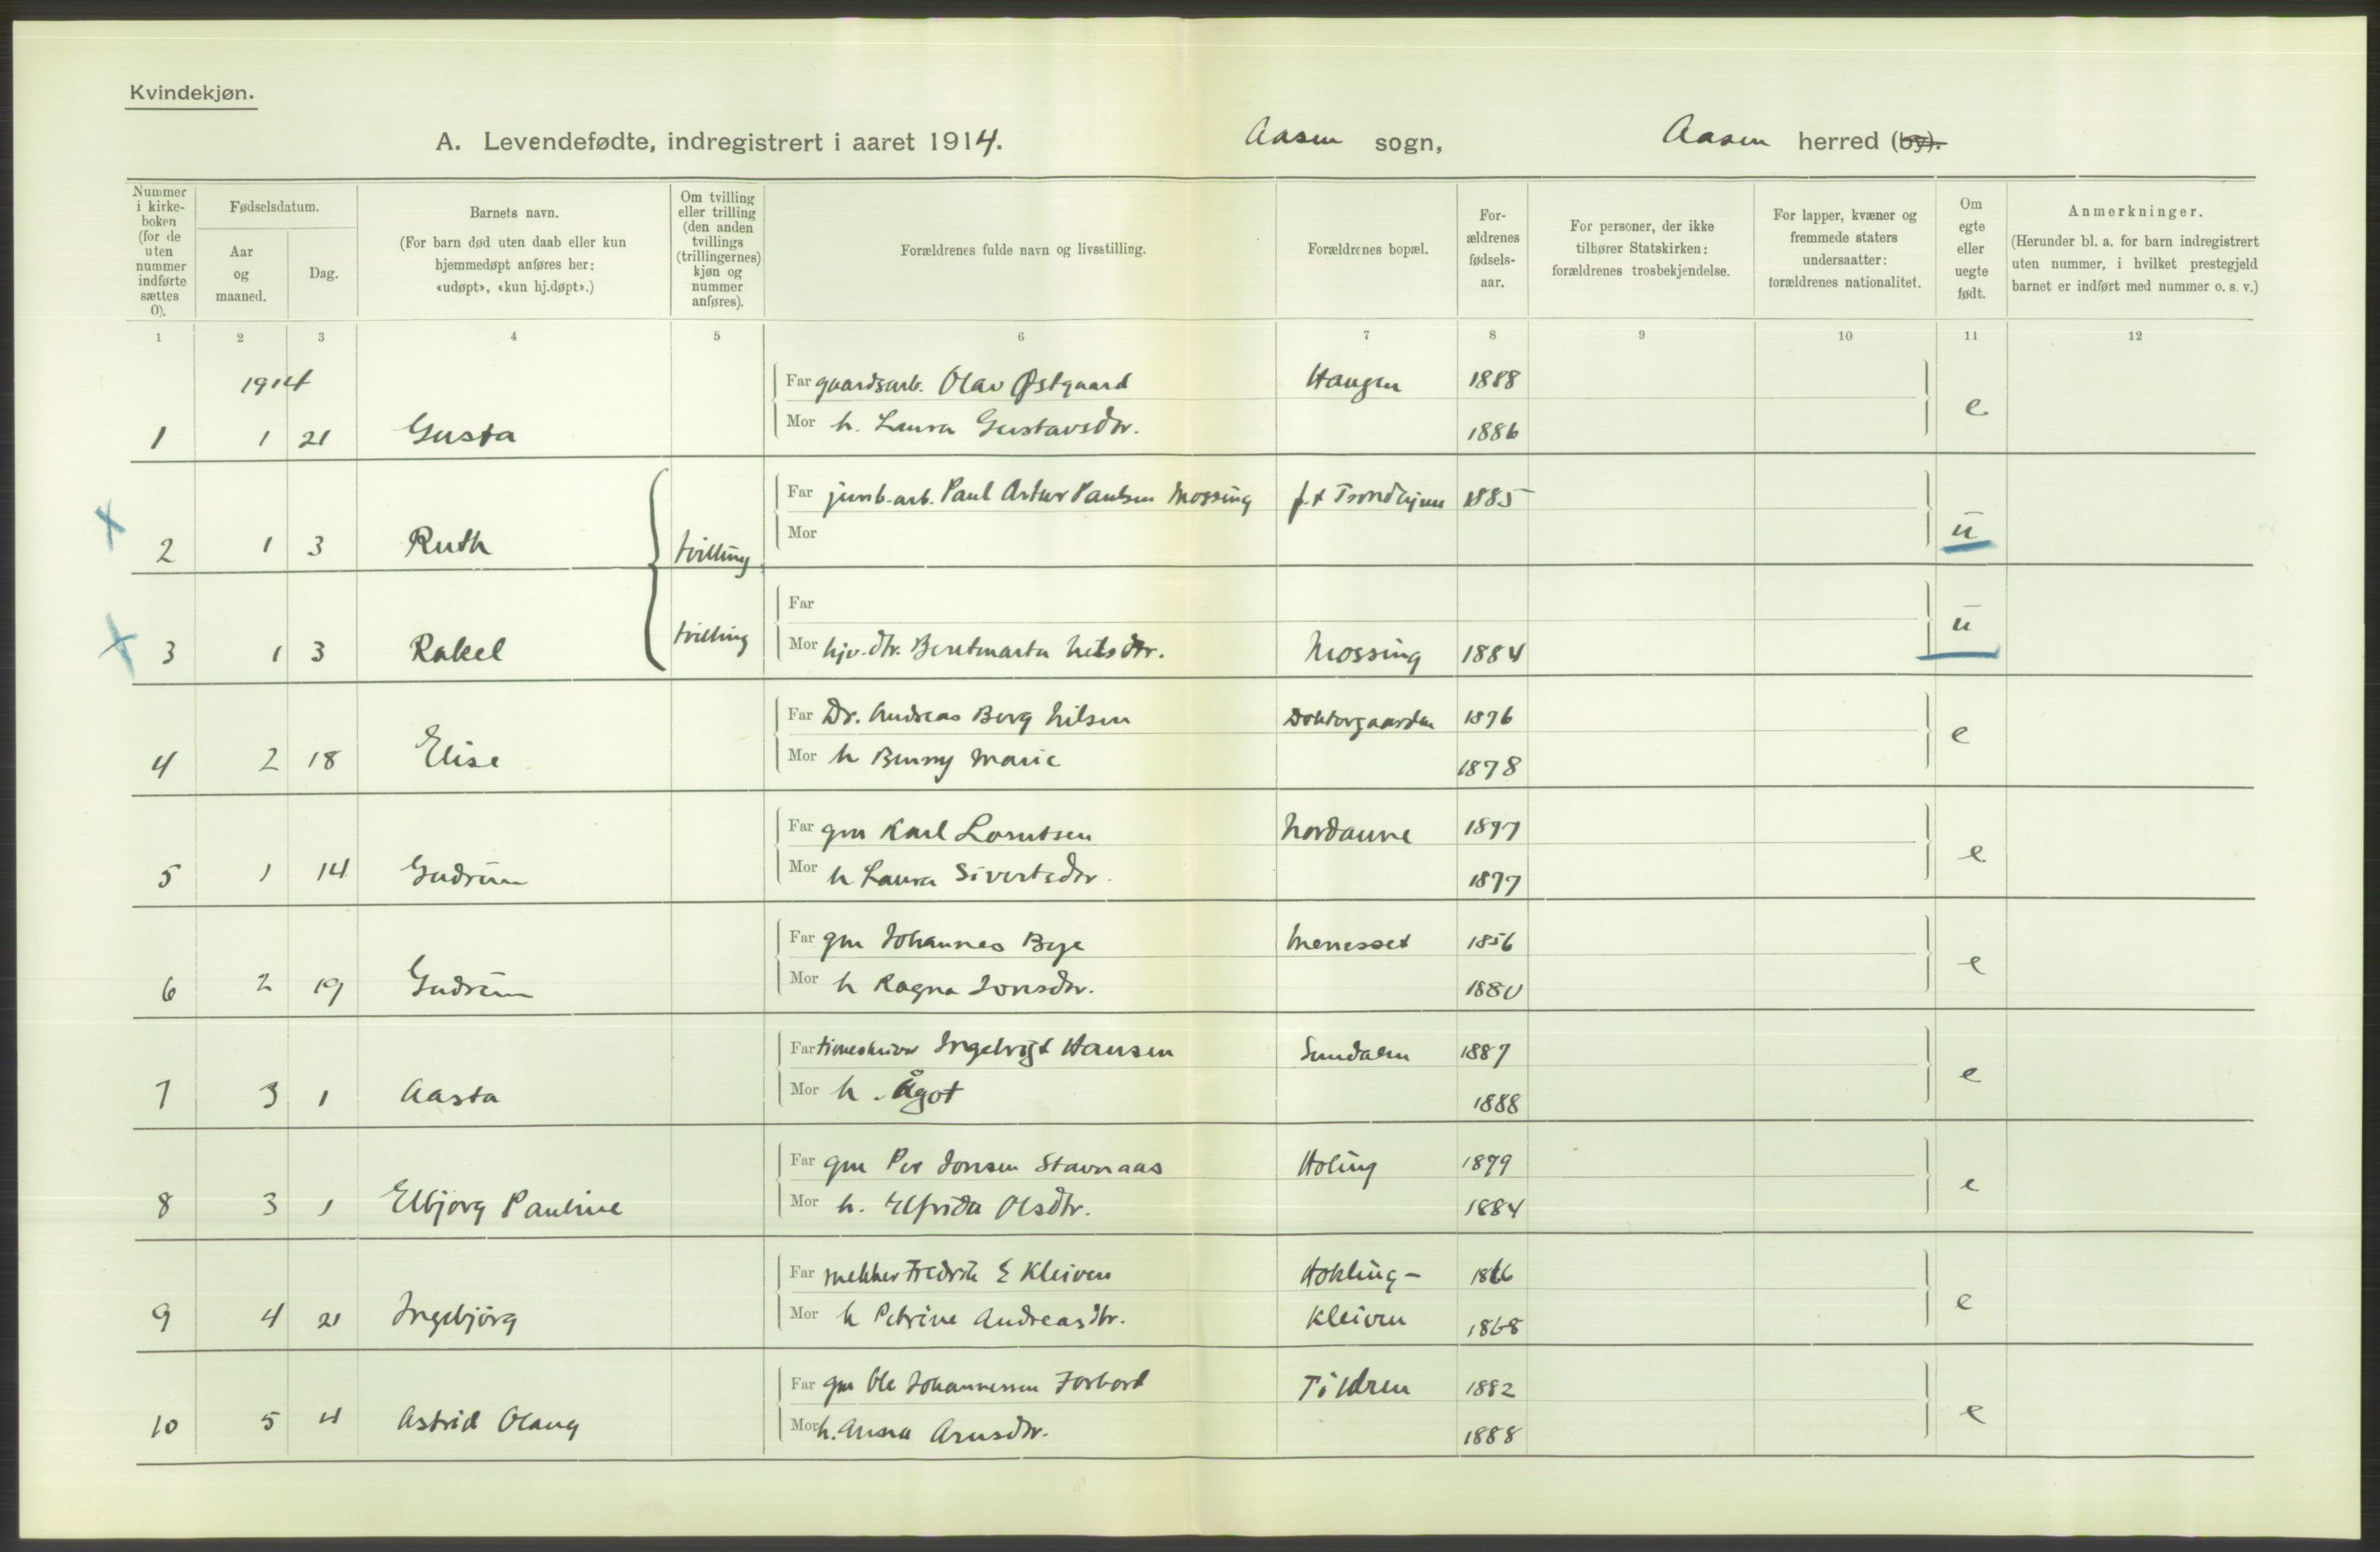 Kvindekjøn.
A. Levendefødte, indregistrert i aaret 1914. Aasen sogn, Aasen herred (by).
Nummer i kirke-boken (for de uten nummer indførte sættes 0).
Fødselsdatum.
Aar og maaned.
Dag.
Barnets navn.
(For barn død uten daab eller kun hjemmedøpt anføres her: «udøpt», «kun hj.døpt».)
Om tvilling eller trilling (den anden tvillings (trillingernes) kjøn og nummer anføres).
Forældrenes fulde navn og livsstilling.
Forældrenes bopæl.
For-ældrenes fødsels-aar.
For personer, der ikke tilhører Statskirken: forældrenes trosbekjendelse.
For lapper, kvæner og fremmede staters undersaatter: forældrenes nationalitet.
Om egte eller uegte født.
Anmerkninger.
(Herunder bl. a. for barn indregistrert uten nummer, i hvilket prestegjeld barnet er indført med nummer o. s. v.)
1 2 3 4 5 6 7 8 9 10 11 12
1914 Far gaardsarb. Olav Østgaard Haugen 1888
1 1 21 Gusta Mor h. Laura Gustavsdtr. 1886 e
Far jernb.arb. Paul Artur Paulsen Mossing p.t Trondhjem 1885
2 1 3 Ruth tvilling Mor u
Far
3 1 3 Rakel tvilling Mor hjv. dtr. Beretmarta Nilsdtr. Mossing 1884 u
Far Dr. Andreas Berg Nilsen Doktorgaarden 1876
4 2 18 Elise Mor h Benny Marie 1878 e
Far gm Karl Lorntsen Nordaune 1877
5 1 14 Gudrun Mor h Laura Sivertsdtr. 1877 e
Far gm Johannes Bye Menesset 1856
6 2 19 Gudrun Mor h Ragna Jonsdtr. 1880 e
Far Ingebrigt Hansen Sundalen 1887
7 3 1 Aasta Mor h. Ågot 1888 e
Far gm Per Jonsen Stavnaas Holing 1879
8 3 1 Elbjorg Pauline Mor h. Elfrida Olsdtr. 1884 e
Far Fredrik E Kleiven Hokling- 1866
9 4 21 Ingebjörg Mor h Petrine Andreasdtr. Kleiven 1868 e
Far gm Ole Johannessen Forbord Tildren 1882
10 5 4 Astrid Olaug Mor h. Anna Arnsdtr. 1888 e